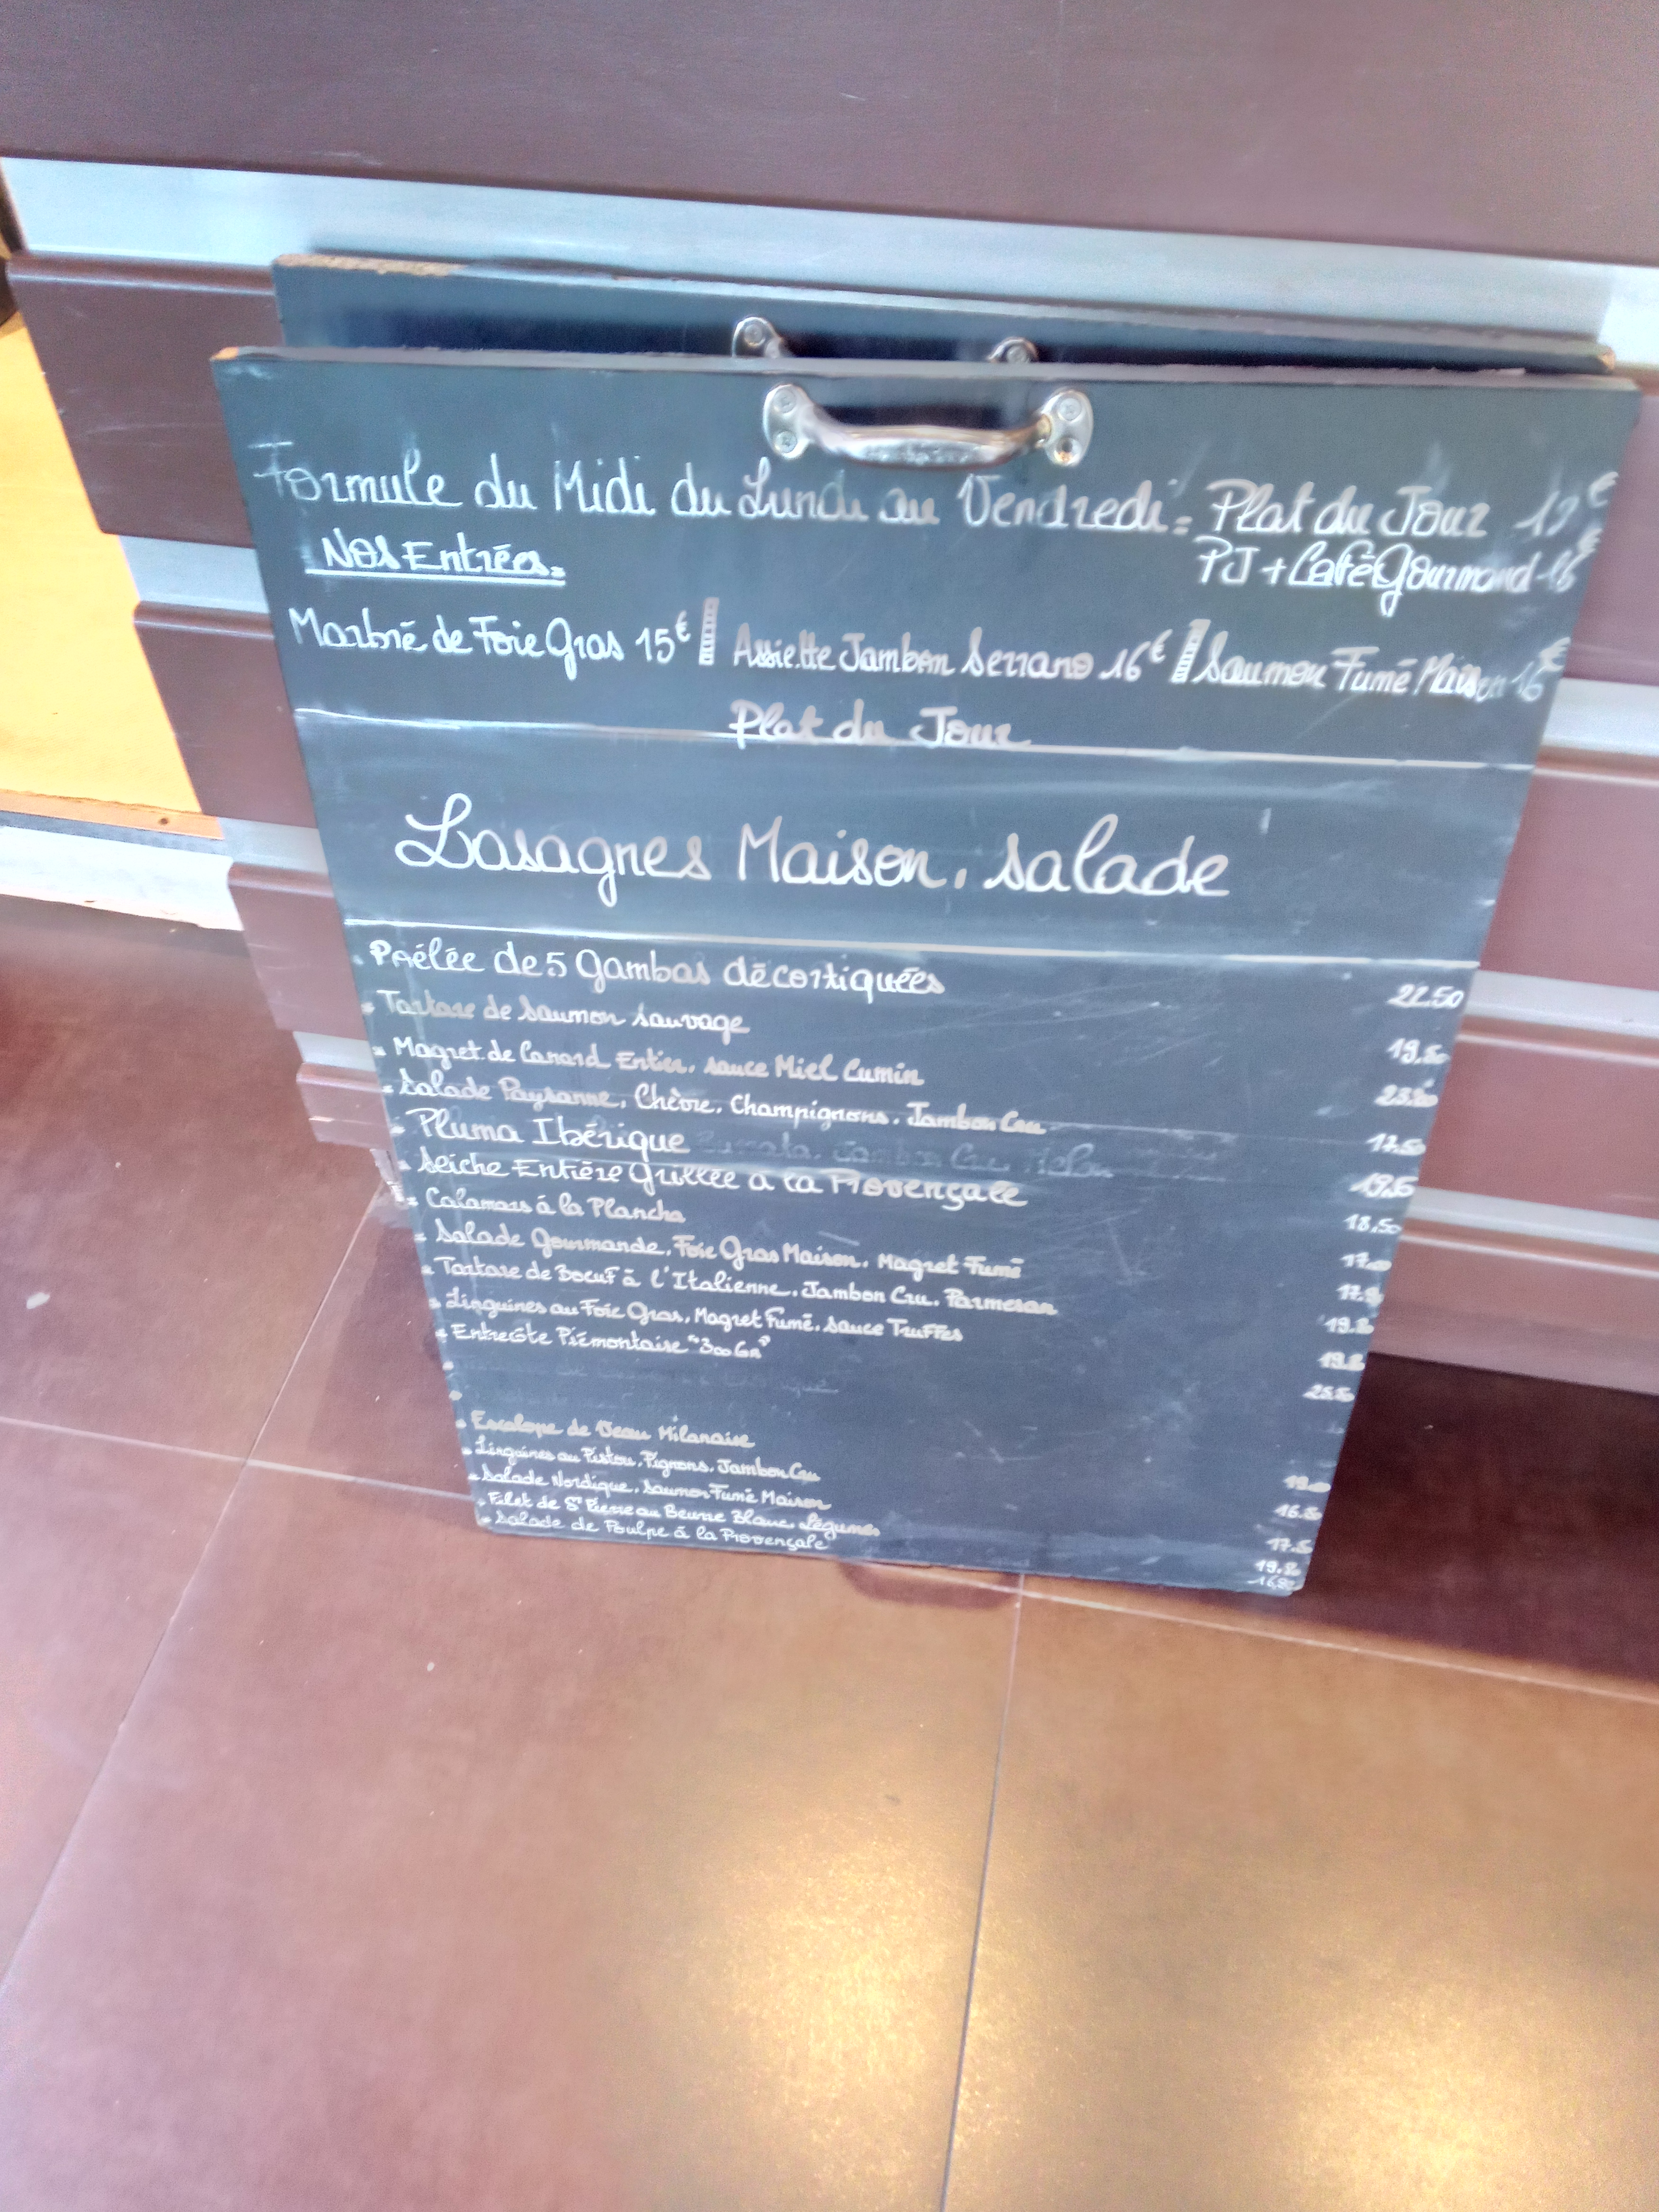 Formule du Midi du Lundi au Vendredi = Plat du Jour
PJ + Café Gourmand
Nos Entrées =
Marbré de Foie Gras 15€ Assiette Jambon Serrano 16€ Saumon Fumé Maison 16€
Plat du Jour
Lasagnes Maison, salade
Poélée de 5 Gambas décortiquées 22.50
Tartare de Saumon sauvage 19.50
Magret de Canard Entier, sauce Miel Cumin
Salade Paysanne, Chèvre, Champignons, Jambon Cru 17.50
Pluma Ibérique
Seiche Entière Grillée a la Provençale 18,50
Calamars à la Plancha
Salade Gourmande, Foie Gras Maison, Magret Fumé
Tartare de Boeuf à l'Italienne, Jambon Cru, Parmesan
Linguines au Foie Gras, Magret Fumé, Sauce Truffes
Entrecôte Piémontaise "300 Gr"
Escalope de Veau Milanaise
Linguines au Pistou, Pignons, Jambon Cru
Salade Nordique, Saumon Fumé Maison
Filet de St Pierre au Beurre Blanc, Légumes
Salade de Poulpe à la Provençale